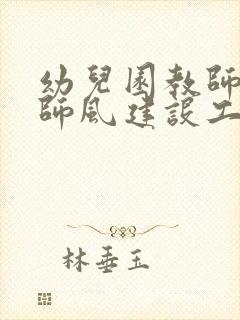 幼兒園教師
師風建設工
林垂玉